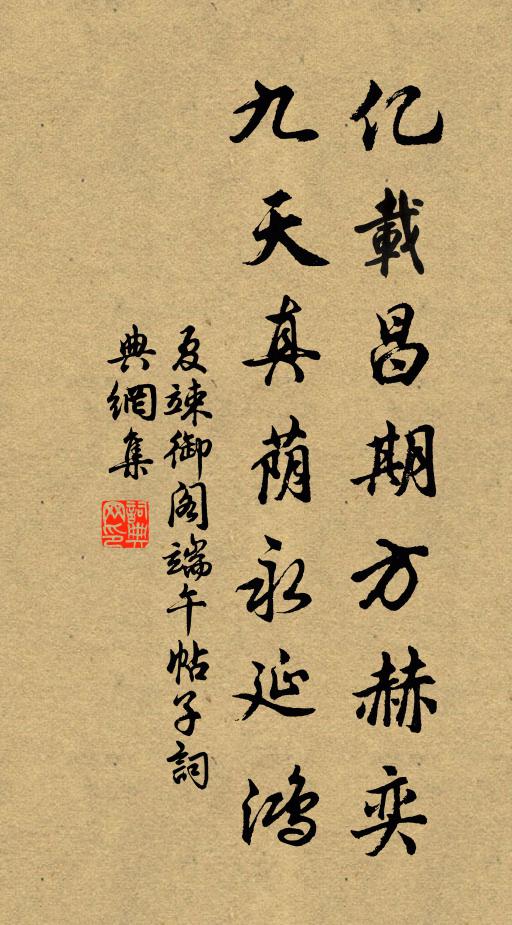 亿載昌期方赫奕
九天真荫永延鸿
夏竦御阁端午帖子詞
典網集
詞典网印